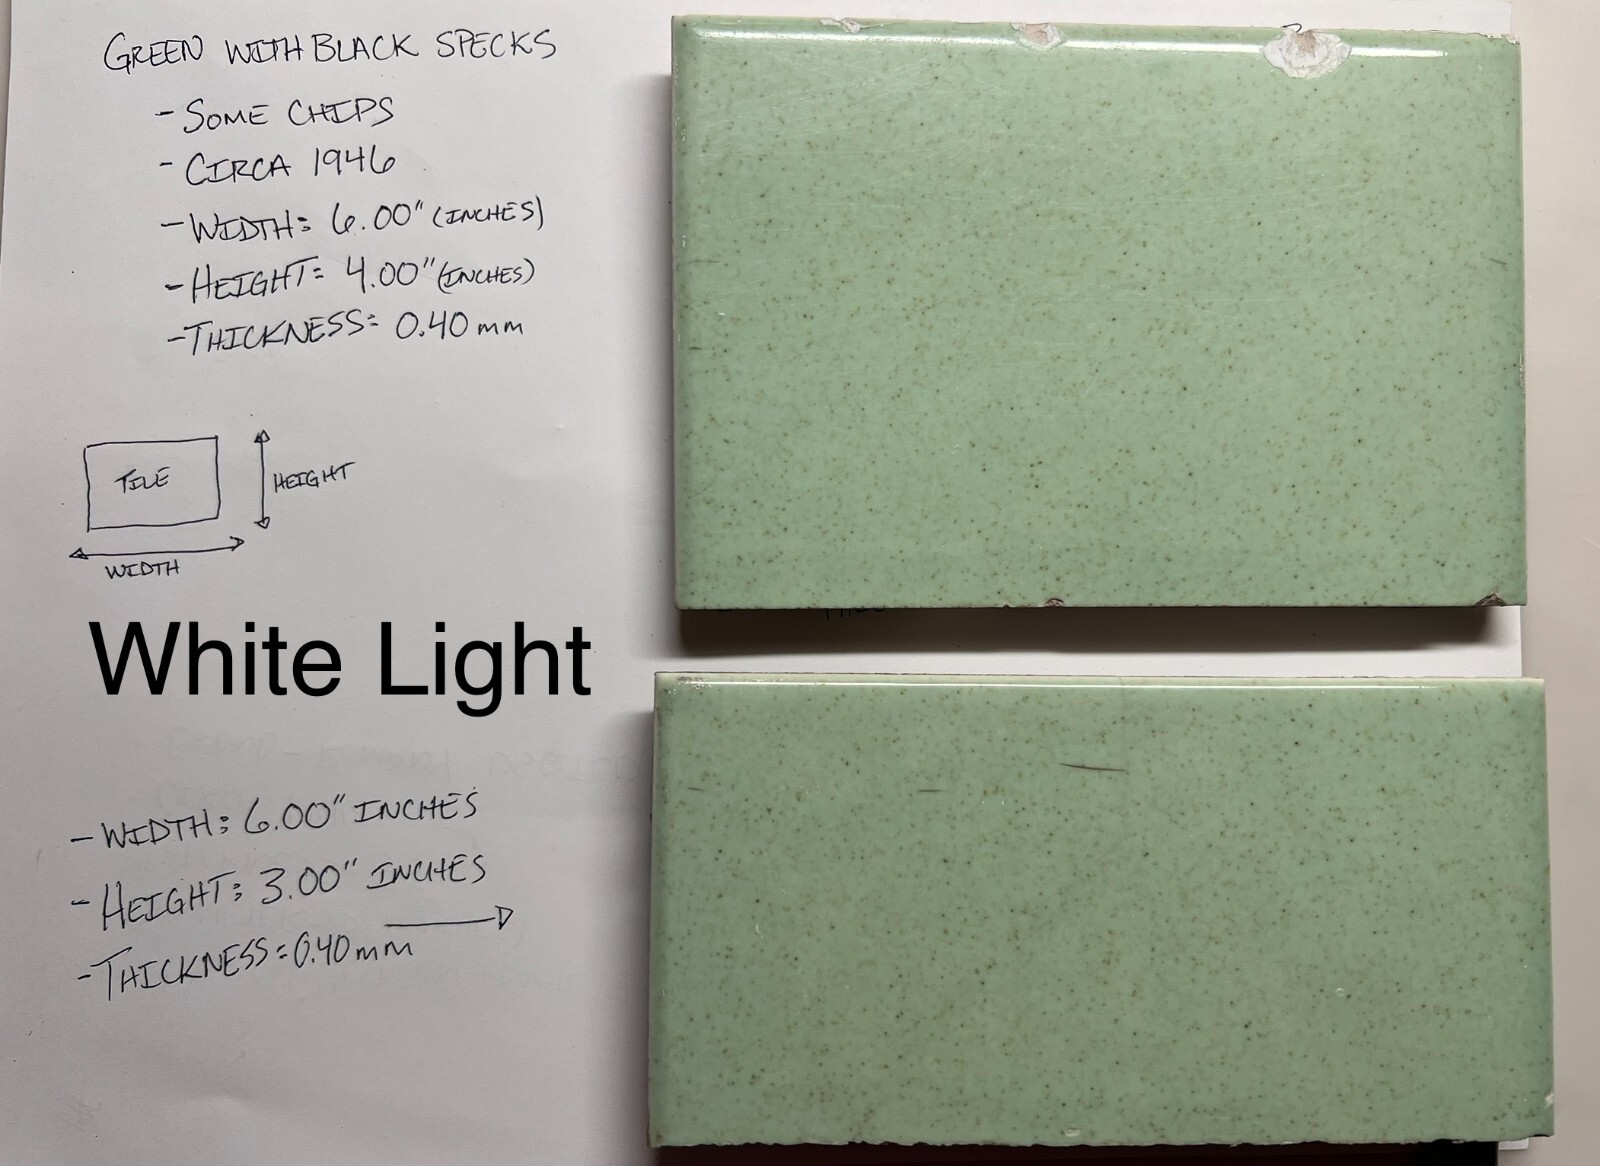 GREEN WITH BLACK SPECKS
- SOME CHIPS
- CIRCA 1946
- WIDTH: 6.00" (INCHES)
- HEIGHT: 4.00" (INCHES)
- THICKNESS: 0.40 mm
TILE
HEIGHT
WIDTH
White Light
- WIDTH: 6.00" INCHES
- HEIGHT: 3.00" INCHES
- THICKNESS: 0.40 mm